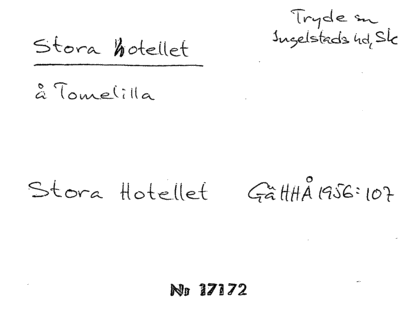 Tryde sn
Ingelstads hd, Sk
Stora hotellet
å Tomelilla
Stora Hotellet GäHHÅ 1956:107
No 17172